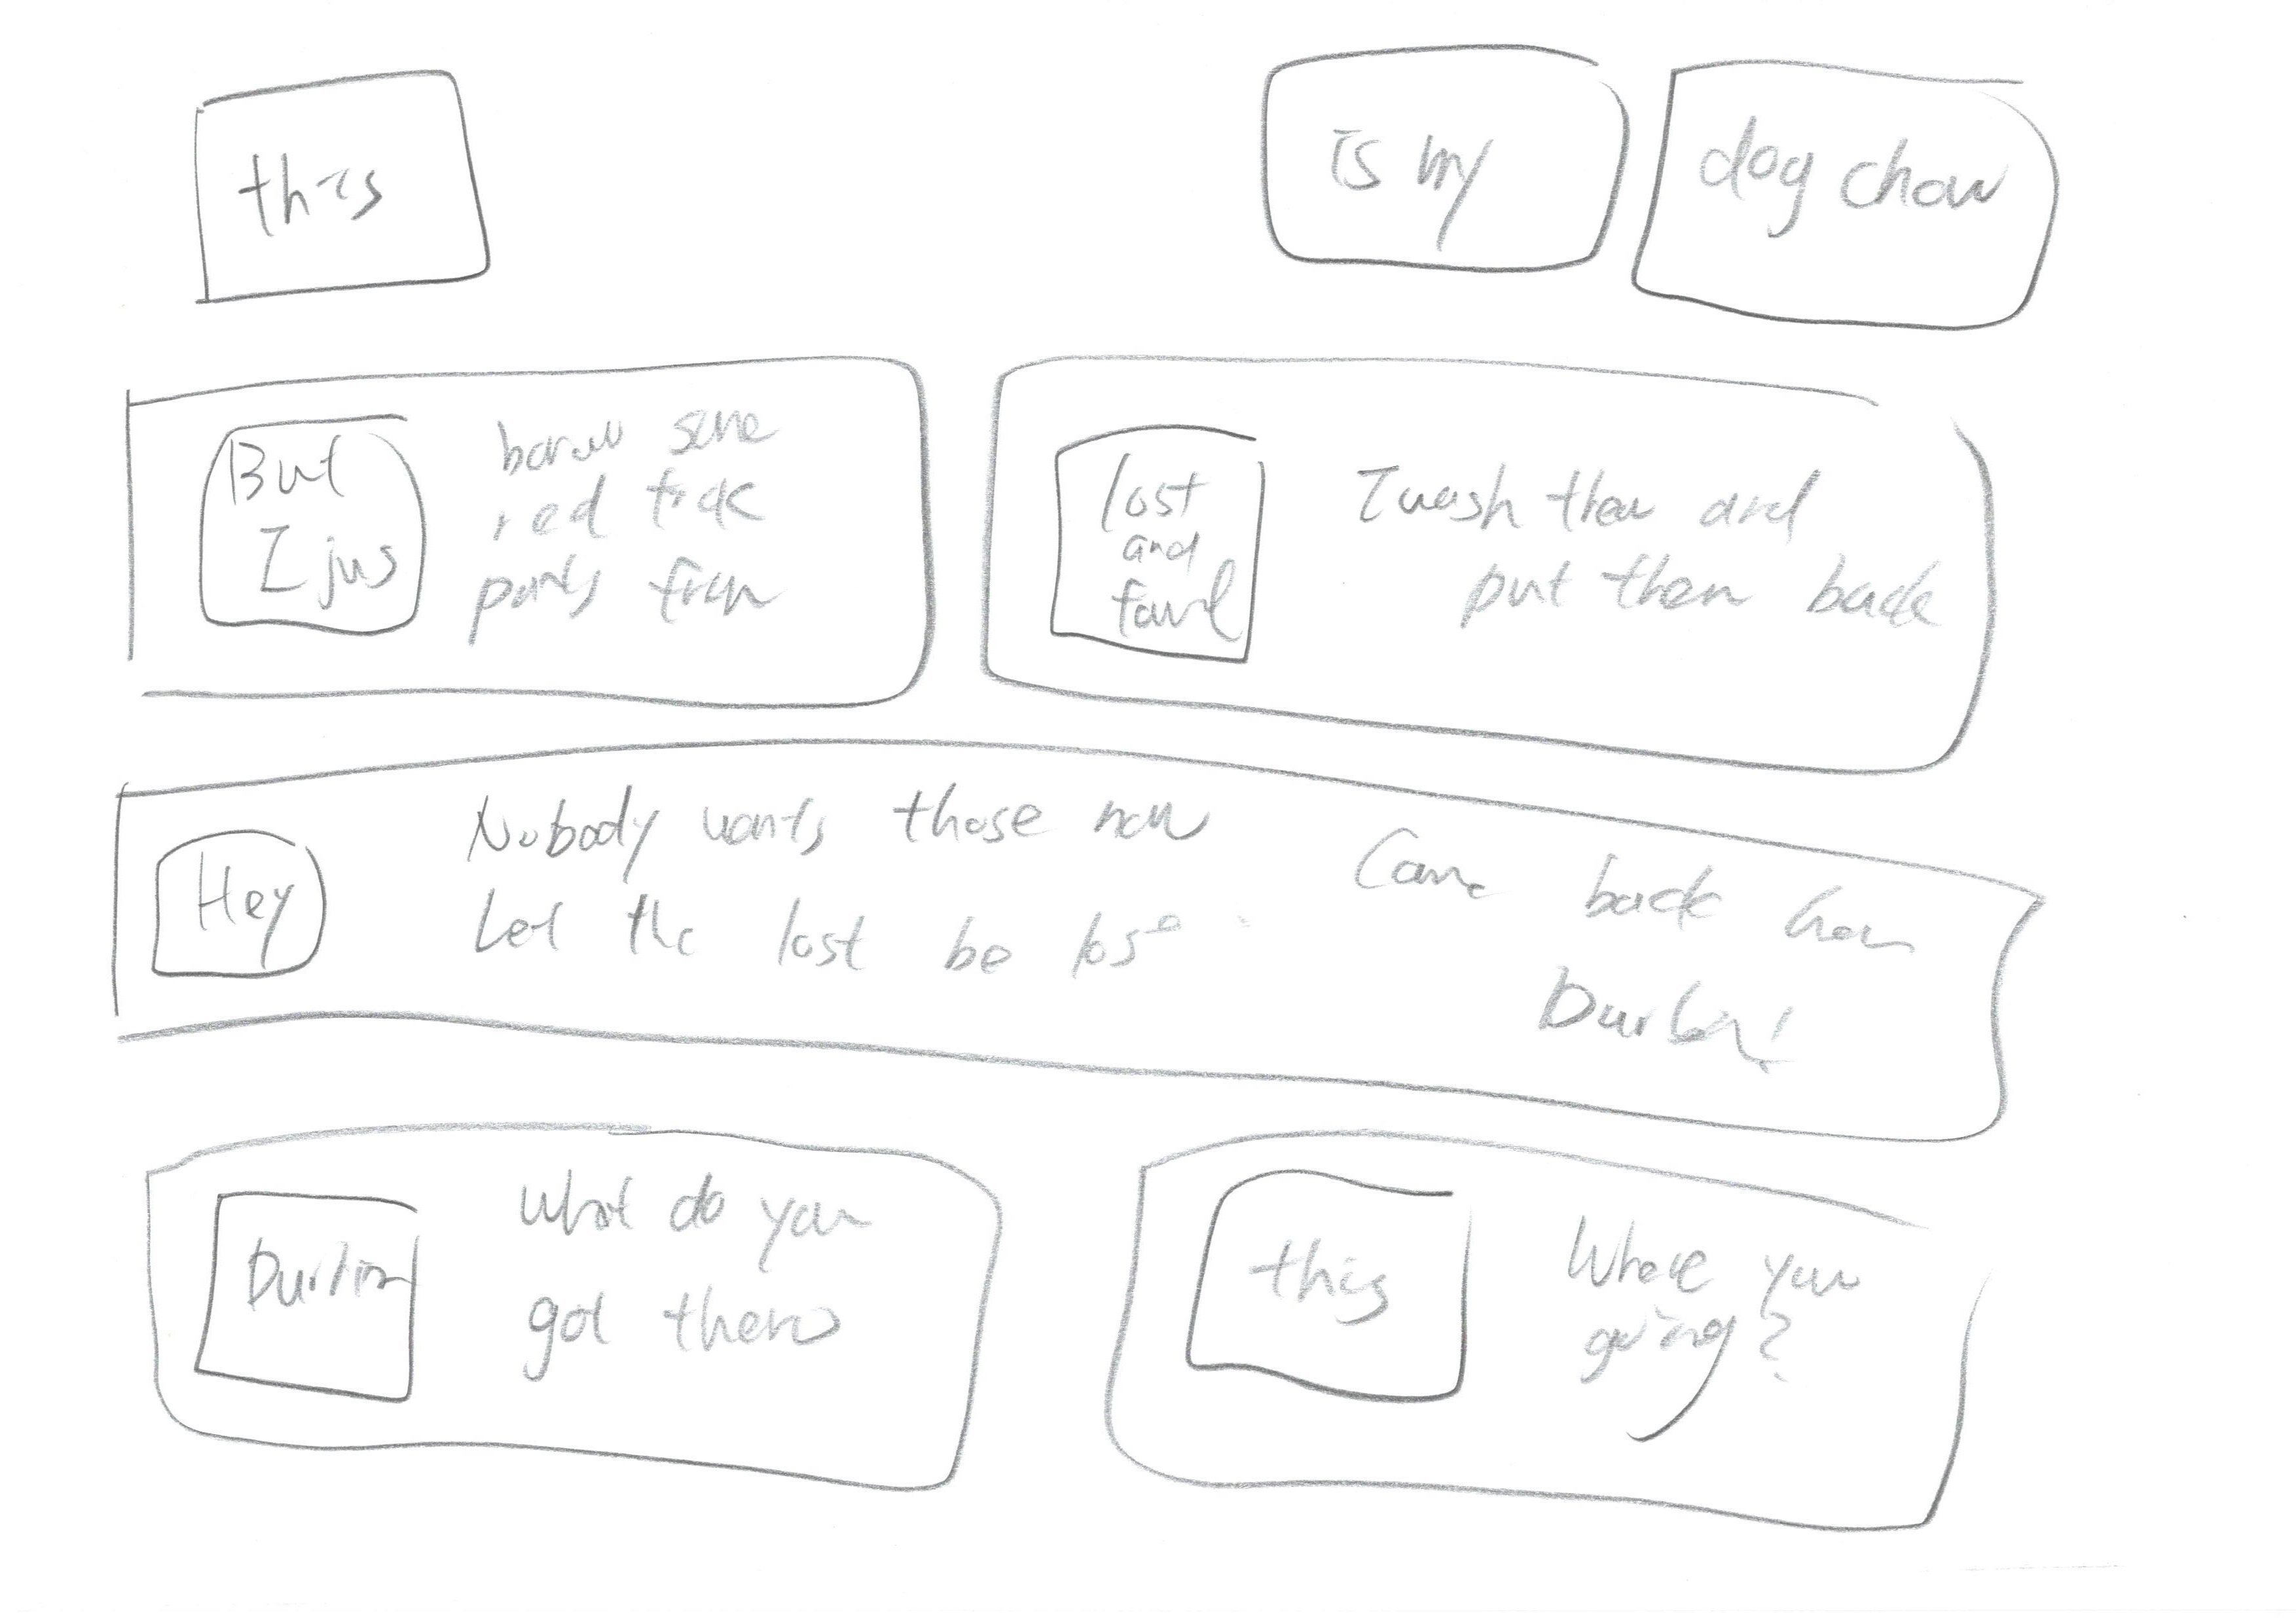 this
is my
dog chow
But
I jus
borow some
red
pants from
lost
and
found
I wash them and
put them back
Hey
Nobody wants those now
Let the lost be lose
Come back here
Durbin!
Durbin
What do you
got there
this
Where you
going?